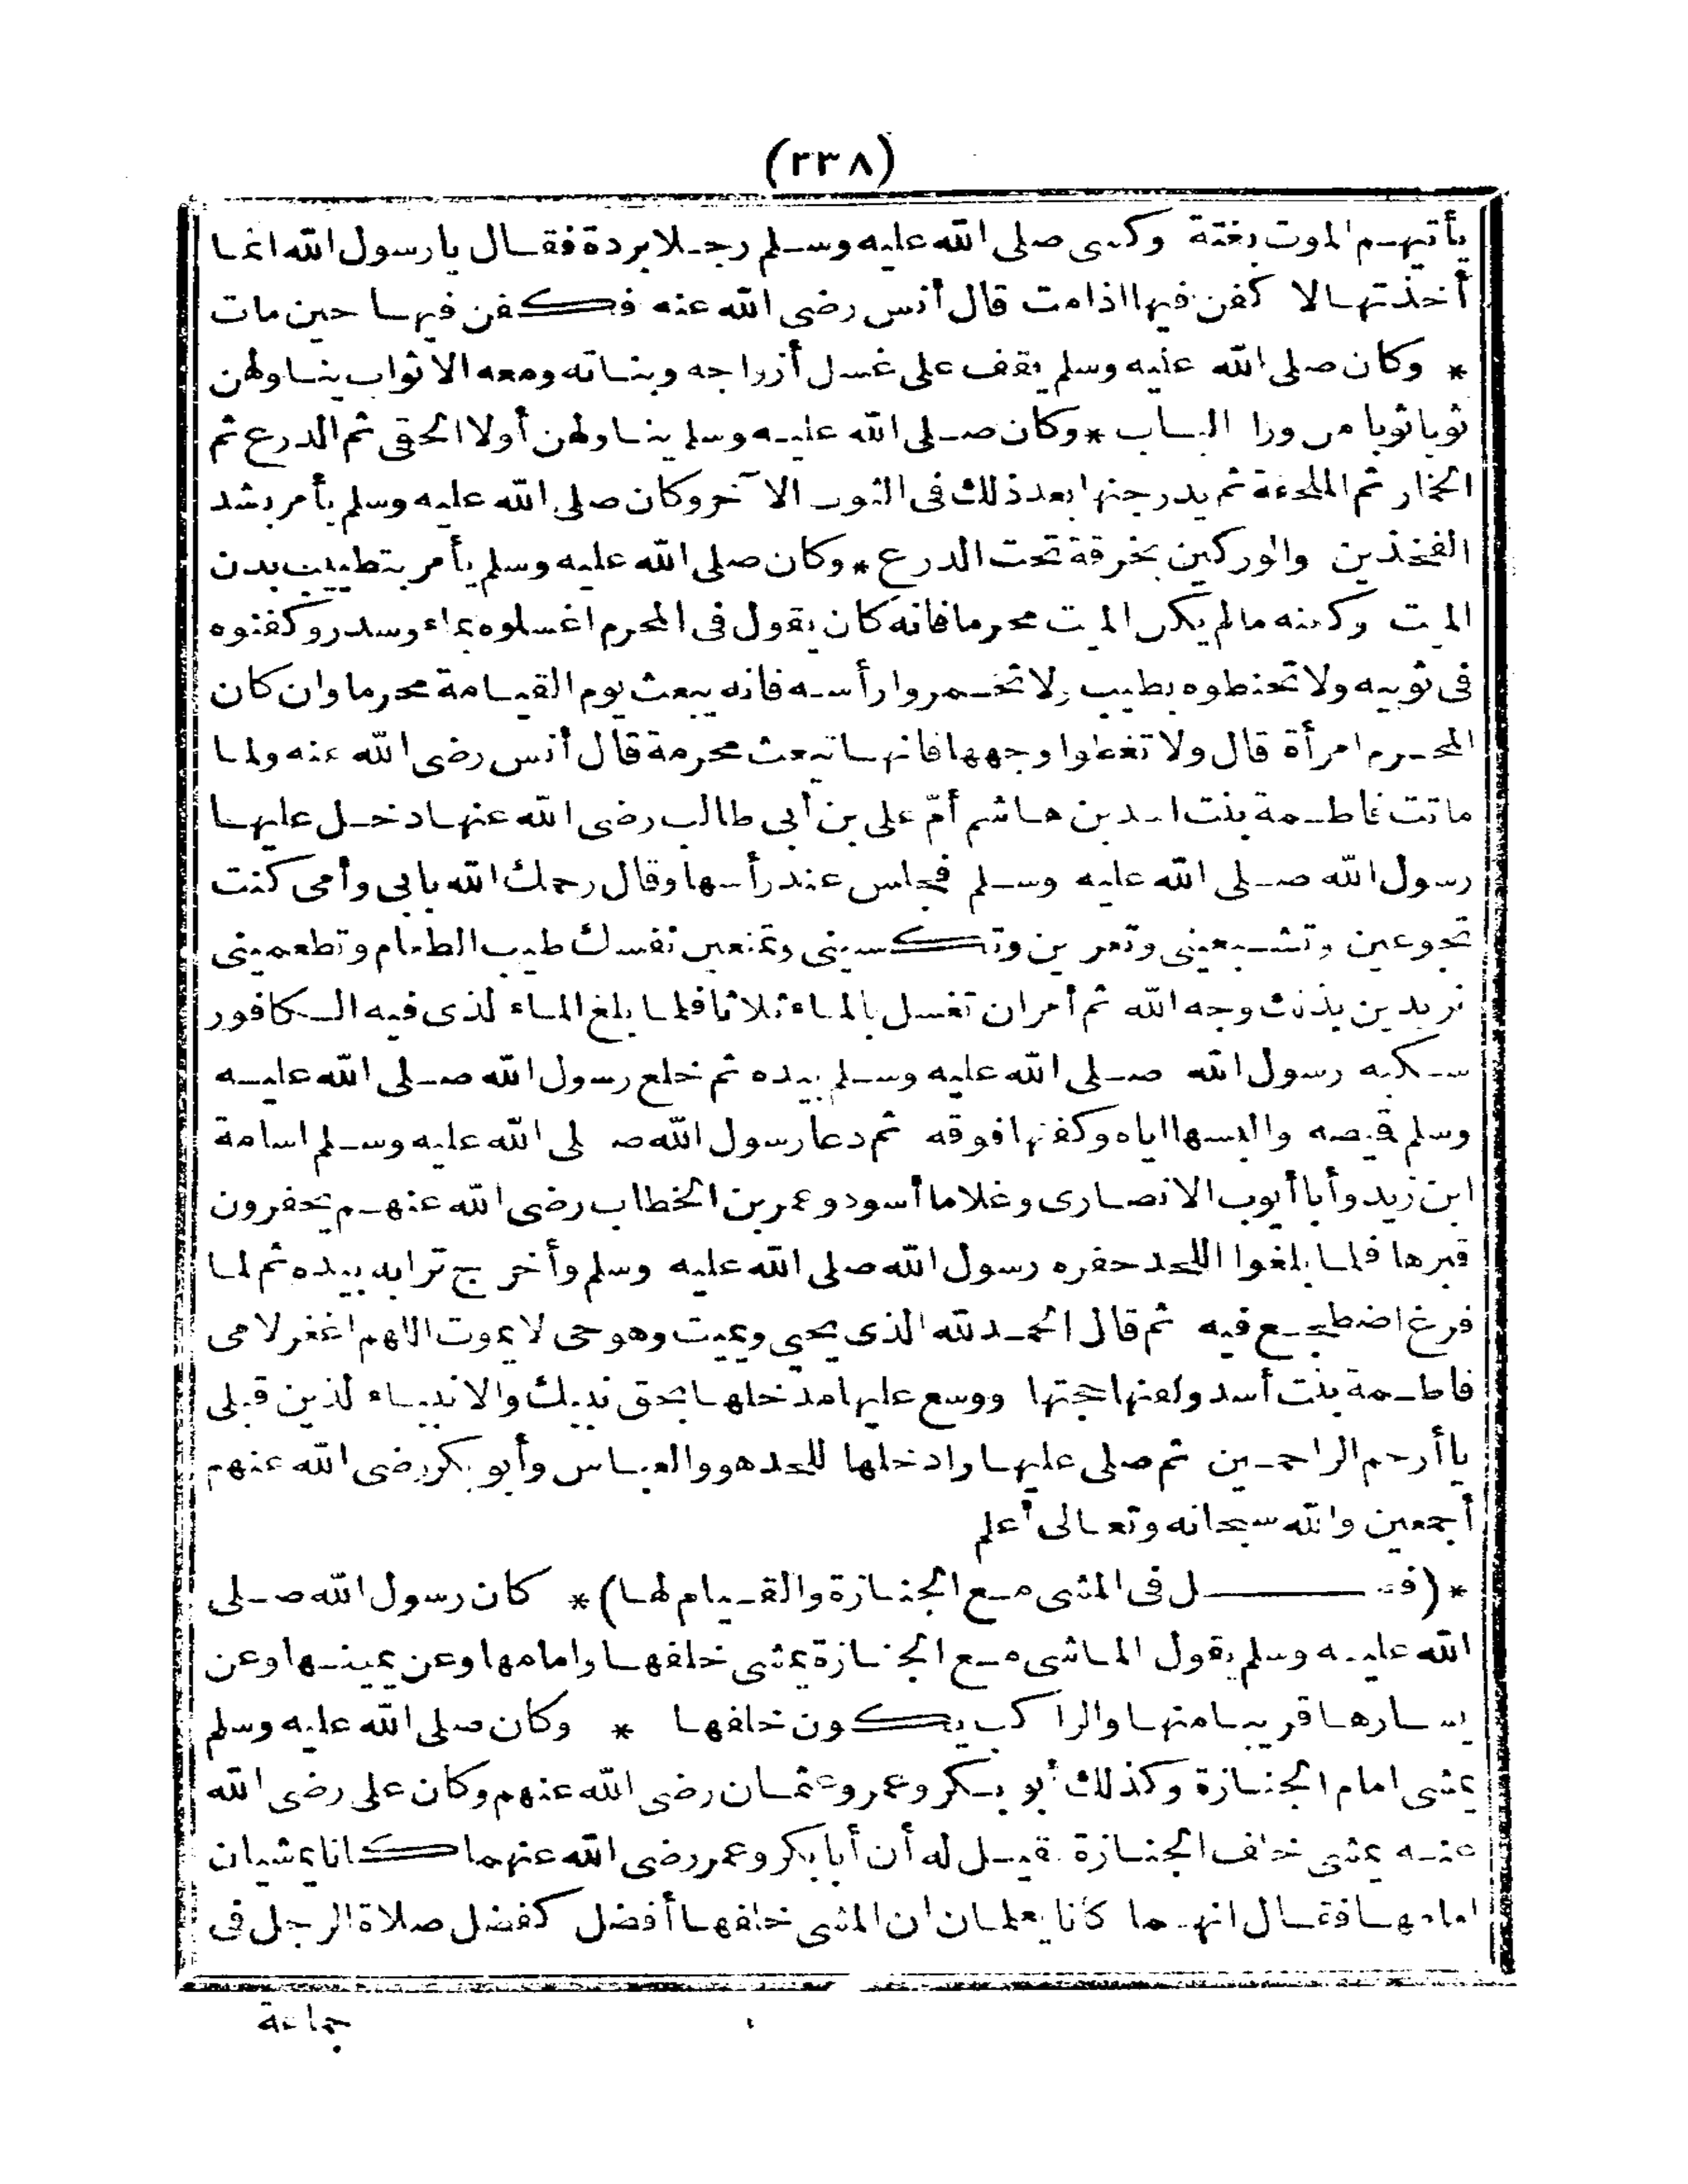 (٢٣٨)
يأتيهم الموت بغتة وكسى صلى الله عليه وسلم رجلا بردة فقال يا رسول الله انما
أخذتها لا كفن فيها اذا مت قال أنس رضى الله عنه فكفن فيها حين مات
* وكان صلى الله عليه وسلم يقف على غسل أزواجه وبناته ومعه الاثواب يناولهن
ثوبا ثوبا من ورا الباب * وكان صلى الله عليه وسلم يناولهن أولا الحقى ثم الدرع ثم
الخمار ثم الملحفة ثم يدرجنها بعد ذلك فى الثوب الآخر وكان صلى الله عليه وسلم يأمر بشد
الفخذين والوركين بخرقة تحت الدرع * وكان صلى الله عليه وسلم يأمر بتطييب بدن
الميت وكفنه مالم يكن الميت محرما فانه كان يقول فى المحرم اغسلوه بماء وسدر وكفنوه
فى ثوبيه ولا تحنطوه بطيب ولا تخمروا رأسه فانه يبعث يوم القيامة محرما وان كان
المحرم امرأة قال ولا تغطوا وجهها فانها تبعث محرمة قال أنس رضى الله عنه ولما
ماتت فاطمة بنت اسد بن هاشم أمّ على بن أبى طالب رضى الله عنها دخل عليها
رسول الله صلى الله عليه وسلم فجلس عند رأسها وقال رحمك الله يا بى وأمى كنت
تجوعين وتشبعينى وتعرين وتكسينى وتمنعين نفسك طيب الطعام وتطعمينى
تريدين بذلك وجه الله ثم أمر ان تغسل بالماء ثلاثا فلما بلغ الماء الذى فيه الكافور
سكبه رسول الله صلى الله عليه وسلم بيده ثم خلع رسول الله صلى الله عليه
وسلم قميصه والبسها اياه وكفنها فوقه ثم دعا رسول الله صلى الله عليه وسلم اسامة
ابن زيد وأبا أيوب الانصارى وغلاما أسود وعمر بن الخطاب رضى الله عنهم يحفرون
قبرها فلما بلغوا اللحد حفره رسول الله صلى الله عليه وسلم وأخرج ترابه بيده ثم لما
فرغ اضطجع فيه ثم قال الحمد لله الذى يحيى ويميت وهو حى لا يموت اللهم اغفر لامى
فاطمة بنت أسد ولقنها حجتها ووسع عليها مدخلها بحق نبيك والانبياء لذين قبلى
يا أرحم الراحمين ثم صلى عليها وادخلها اللحد هو والعباس وأبو بكر رضى الله عنهم
أجمعين والله سبحانه وتعالى أعلم
*(فصل فى المشى مع الجنازة والقيام لها)* كان رسول الله صلى
الله عليه وسلم يقول الماشى مع الجنازة يمشى خلفها وامامها وعن يمينها وعن
يسارها قريبا منها والراكب يكون خلفها * وكان صلى الله عليه وسلم
يمشى امام الجنازة وكذلك أبو بكر وعمر وعثمان رضى الله عنهم وكان على رضى الله
عنه يمشى خلف الجنازة فقيل له أن أبا بكر وعمر رضى الله عنهما كانا يمشيان
امامها فقال انهما كانا يعلمان ان المشى خلفها أفضل كفضل صلاة الرجل فى
جماعة